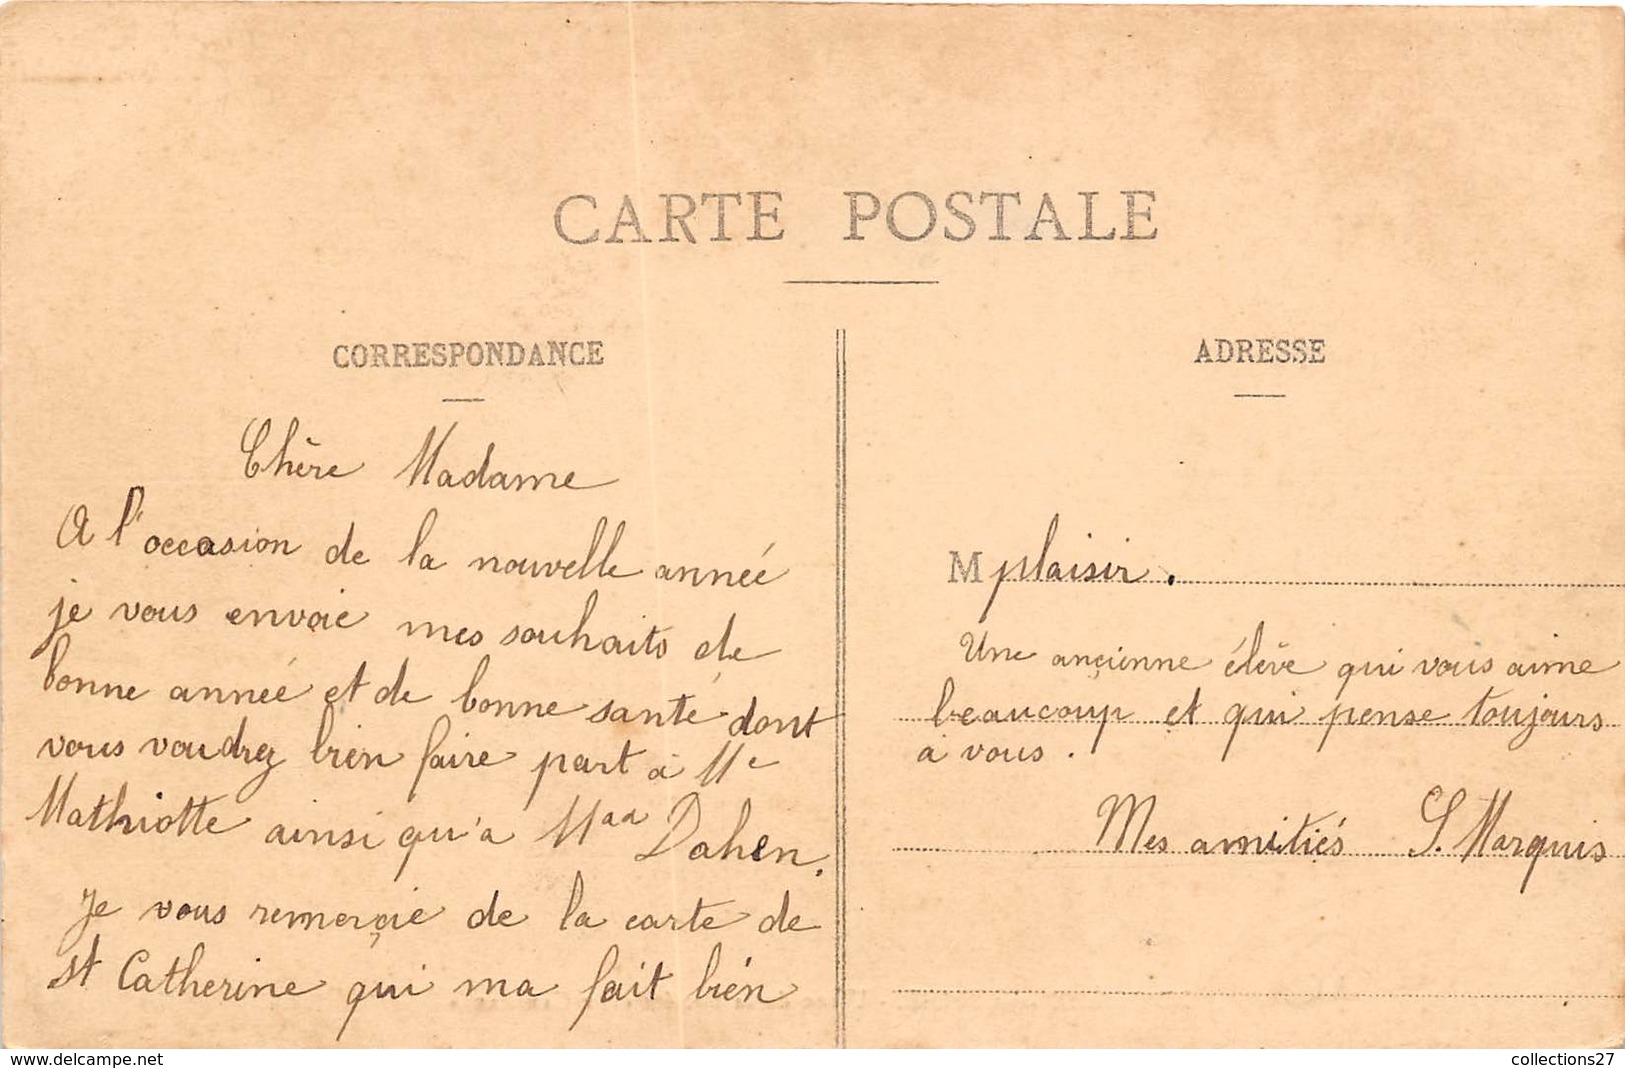 CARTE POSTALE
CORRESPONDANCE
Chère Madame
A l'occasion de la nouvelle année
je vous envoie mes souhaits de
bonne année et de bonne santé dont
vous voudrez bien faire part à Me
Mathiotte ainsi qu'a Maa Dahen.
Je vous remerçie de la carte de
st Catherine qui ma fait bien
ADRESSE
M plaisir.
Une ançienne élève qui vous aime
beaucoup et qui pense toujours
a vous.
Mes amitiés S. Marquis
www.delcampe.net
collections27